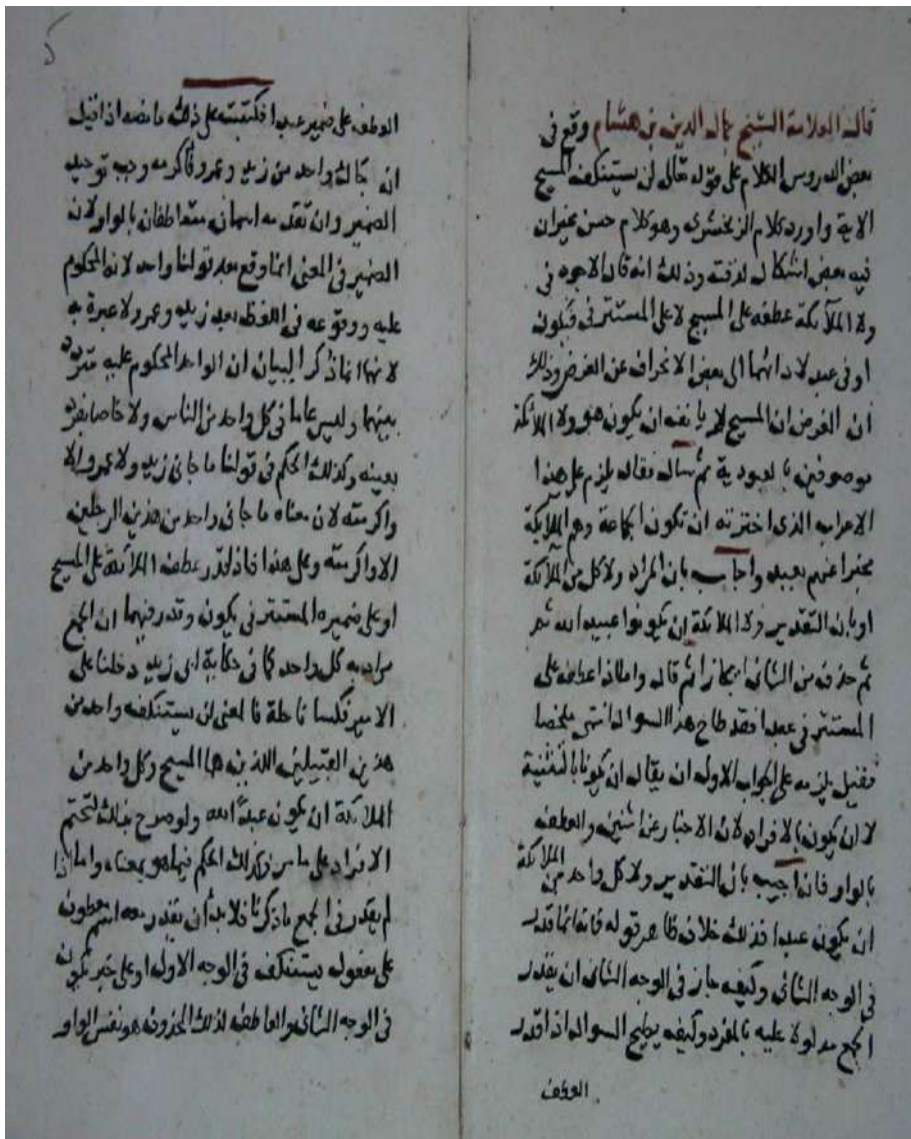 قال العلامة الشيخ جمال الدين بن هشام وقع في
بعض الدروس الكلام على قوله تعالى لن يستنكف المسيح
الاية واورد كلام الزمخشري وهو كلام حسن غير ان
فيه بعض اشكال لدقته وذلك انه قال الاجود في
ولا الملآئكة عطفه على المسيح لا على المستتر في فيكون
او في عبد لادائهما الى بعض الانحراف عن الغرض وذلك
ان الغرض ان المسيح لا يانف ان يكون هو ولا الملائكة
موصوفين بالعبودية ثم سال فقال يلزم على هذا
الاعراب الذي اخترته ان تكون الجماعة وهم الملايكة
مخبرا عنهم بعبد واجاب بان المراد ولا كل من الملآئكة
او بان التقدير ولا الملائكة ان يكونوا عبيد الله ثم
ثم حذف من الثاني ايجازا ثم قال واما اذا عطف على
المستتر في عبدا فقد طاح هذا السوال انتهى ملخصا
فقيل يلزمه على الجواب الاول ان يقال ان يكونا بالتثنية
لا ان يكون بالافراد لان الاخبار عن اثنين والعطف
بالواو فان اجيب بان التقدير ولا كل واحد من الملائكة
ان يكون عبدا فذلك خلاف ظاهر قوله فانه انما قدر
في الوجه الثاني وكيف جاز في الوجه الثاني ان يقدر
الجمع مدلولا عليه بالمفرد وكيف يطيح السوال اذا قدر
العطف
العطف على ضمير عبدا فكتبت على ذلك ما نصه اذا قيل
ان جاك واحد من زيد وعمرو فاكرمه وجب توحيد
الضمير وان تقدمه اسمان متعاطفان بالواو لان
الضمير في المعنى انما وقع بعد قولنا واحد لانه المحكوم
عليه ووقوعه في اللفظ بعد زيد وعمرو لا عبرة به
لانهما انما ذكرا لبيان ان الواحد المحكوم عليه متردد
بينهما وليس عاما في كل واحد من الناس ولا خاصا بفرد
بعينه وكذلك الحكم في قولنا ما جاني زيد ولا عمرو الا
واكرمته لان معناه ما جاني واحد من هذين الرجلين
الا واكرمته وعلى هذا فاذا قدر عطف الملائكة على المسيح
او على ضميره المستتر في يكون وقدر فيهما ان الجمع
مراد به كل واحد كما في حكاية ابي زيد دخلنا على
الامير فكسانا حلة فالمعنى لن يستنكف واحد من
هذين القبيلين اللذين هما المسيح وكل واحد من
الملائكة ان يكون عبدًا لله ولو صرح بذلك لتحتم
الافراد على ما مر وكذلك الحكم فيما هو بمعناه واما اذا
لم يقدر في الجمع ما ذكرنا فلا بد ان يقدر معه اسم معطوف
على مفعول يستنكف في الوجه الاول او على خبر يكون
في الوجه الثاني والعاطف لذلك المحذوف هو نفس الواو